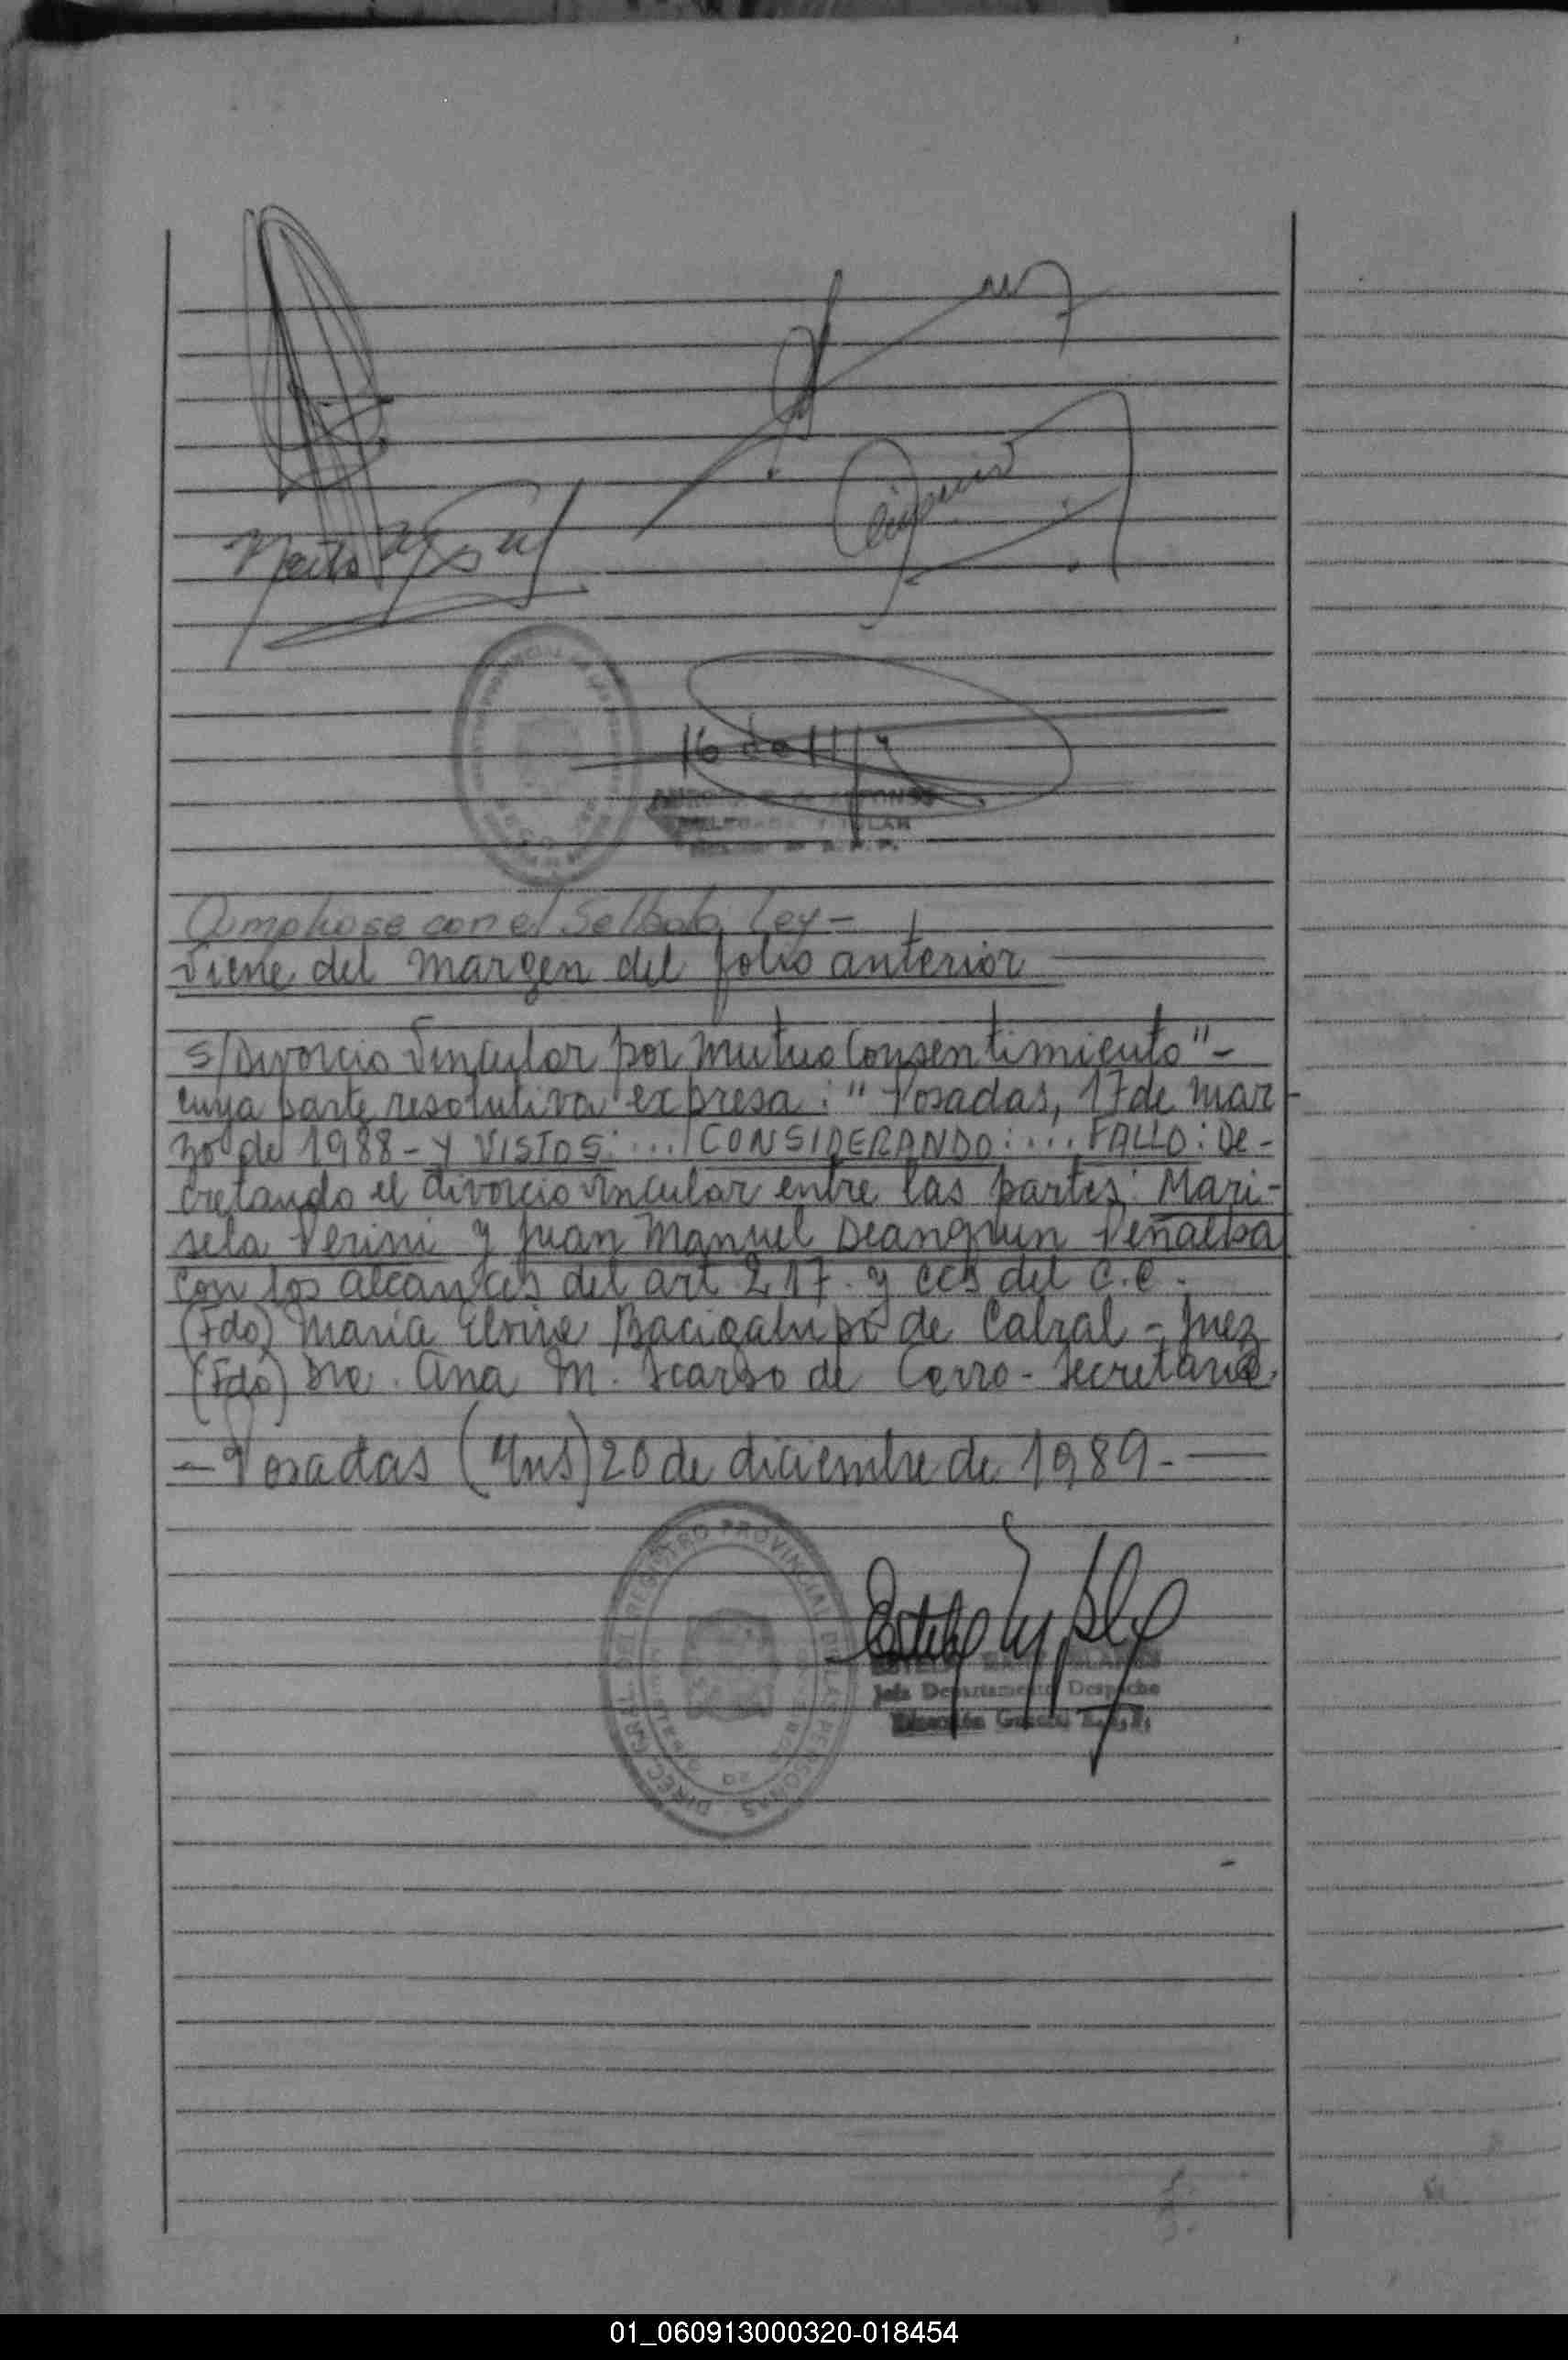 16 de 11
Cumpliose con el Sellado Ley -
viene del margen del folio anterior
s/Divorcio Vincular por mutuo Consentimiento" -
cuya parte resolutiva expresa: " Posadas, 17 de mar-
zo de 1988 - Y VISTOS: ... CONSIDERANDO: ... FALLO: De-
cretando el divorcio vincular entre las partes: Mari-
sela Verini y Juan Manuel Peñalba
con los alcances del art 217. y ccs del C.C.
(Fdo) María Elvira Bacigalupi de Cabral - Juez
(Fdo) Dra. Ana M. Scarso de Cerro - Secretaria.
- Posadas (Mns) 20 de diciembre de 1989. -
DIREC. GRAL. DEL REGISTRO PROVINCIAL DE LAS PERSONAS
Jefe Departamento Despacho
Dirección General R.P.P.
01_060913000320-018454